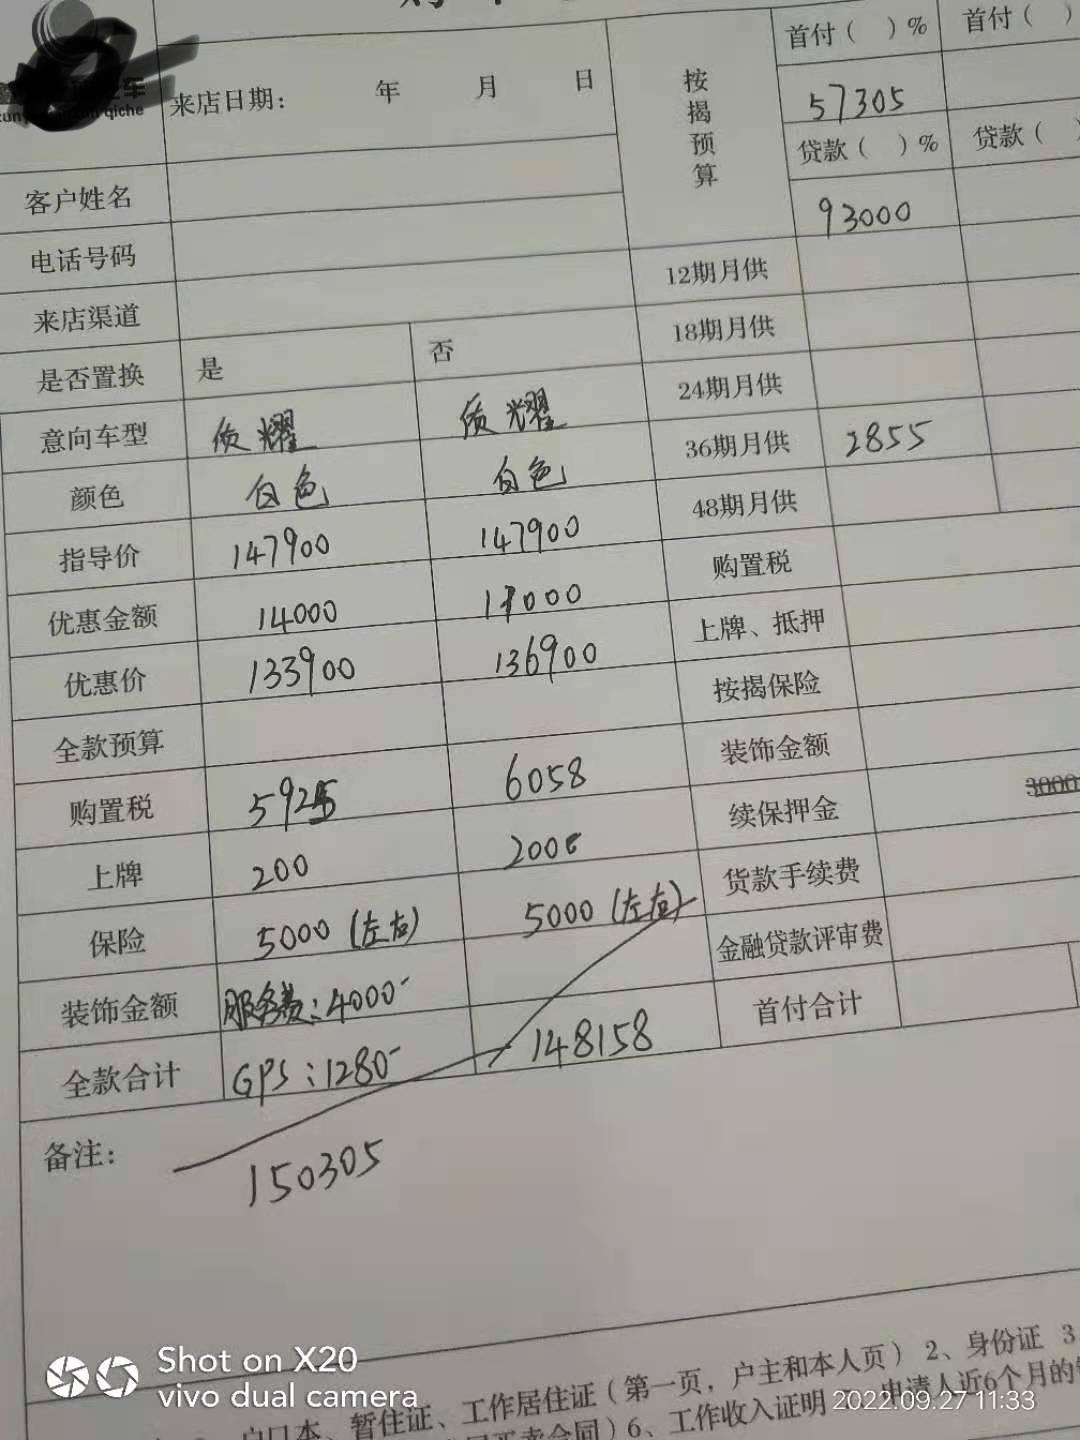 来店日期： 年 月 日
按揭预算
首付（ ）% 首付（ ）
57305
贷款（ ）% 贷款（ ）
93000
客户姓名
电话号码
来店渠道
12期月供
是否置换 是 否 18期月供
意向车型 质耀 质耀 24期月供
颜色 白色 白色 36期月供 2855
指导价 147900 147900 48期月供
优惠金额 14000 11000 购置税
优惠价 133900 136900 上牌、抵押
全款预算 按揭保险
购置税 5925 6058 装饰金额
上牌 200 200 续保押金 3000
保险 5000（左右） 5000（左右） 货款手续费
装饰金额 服务费：4000 金融贷款评审费
全款合计 GPS：1280 148158 首付合计
备注：
150305
户口本、暂住证、工作居住证（第一页，户主和本人页）2、身份证 3
6、工作收入证明 申请人近6个月的
Shot on X20
vivo dual camera
2022.09.27 11:33